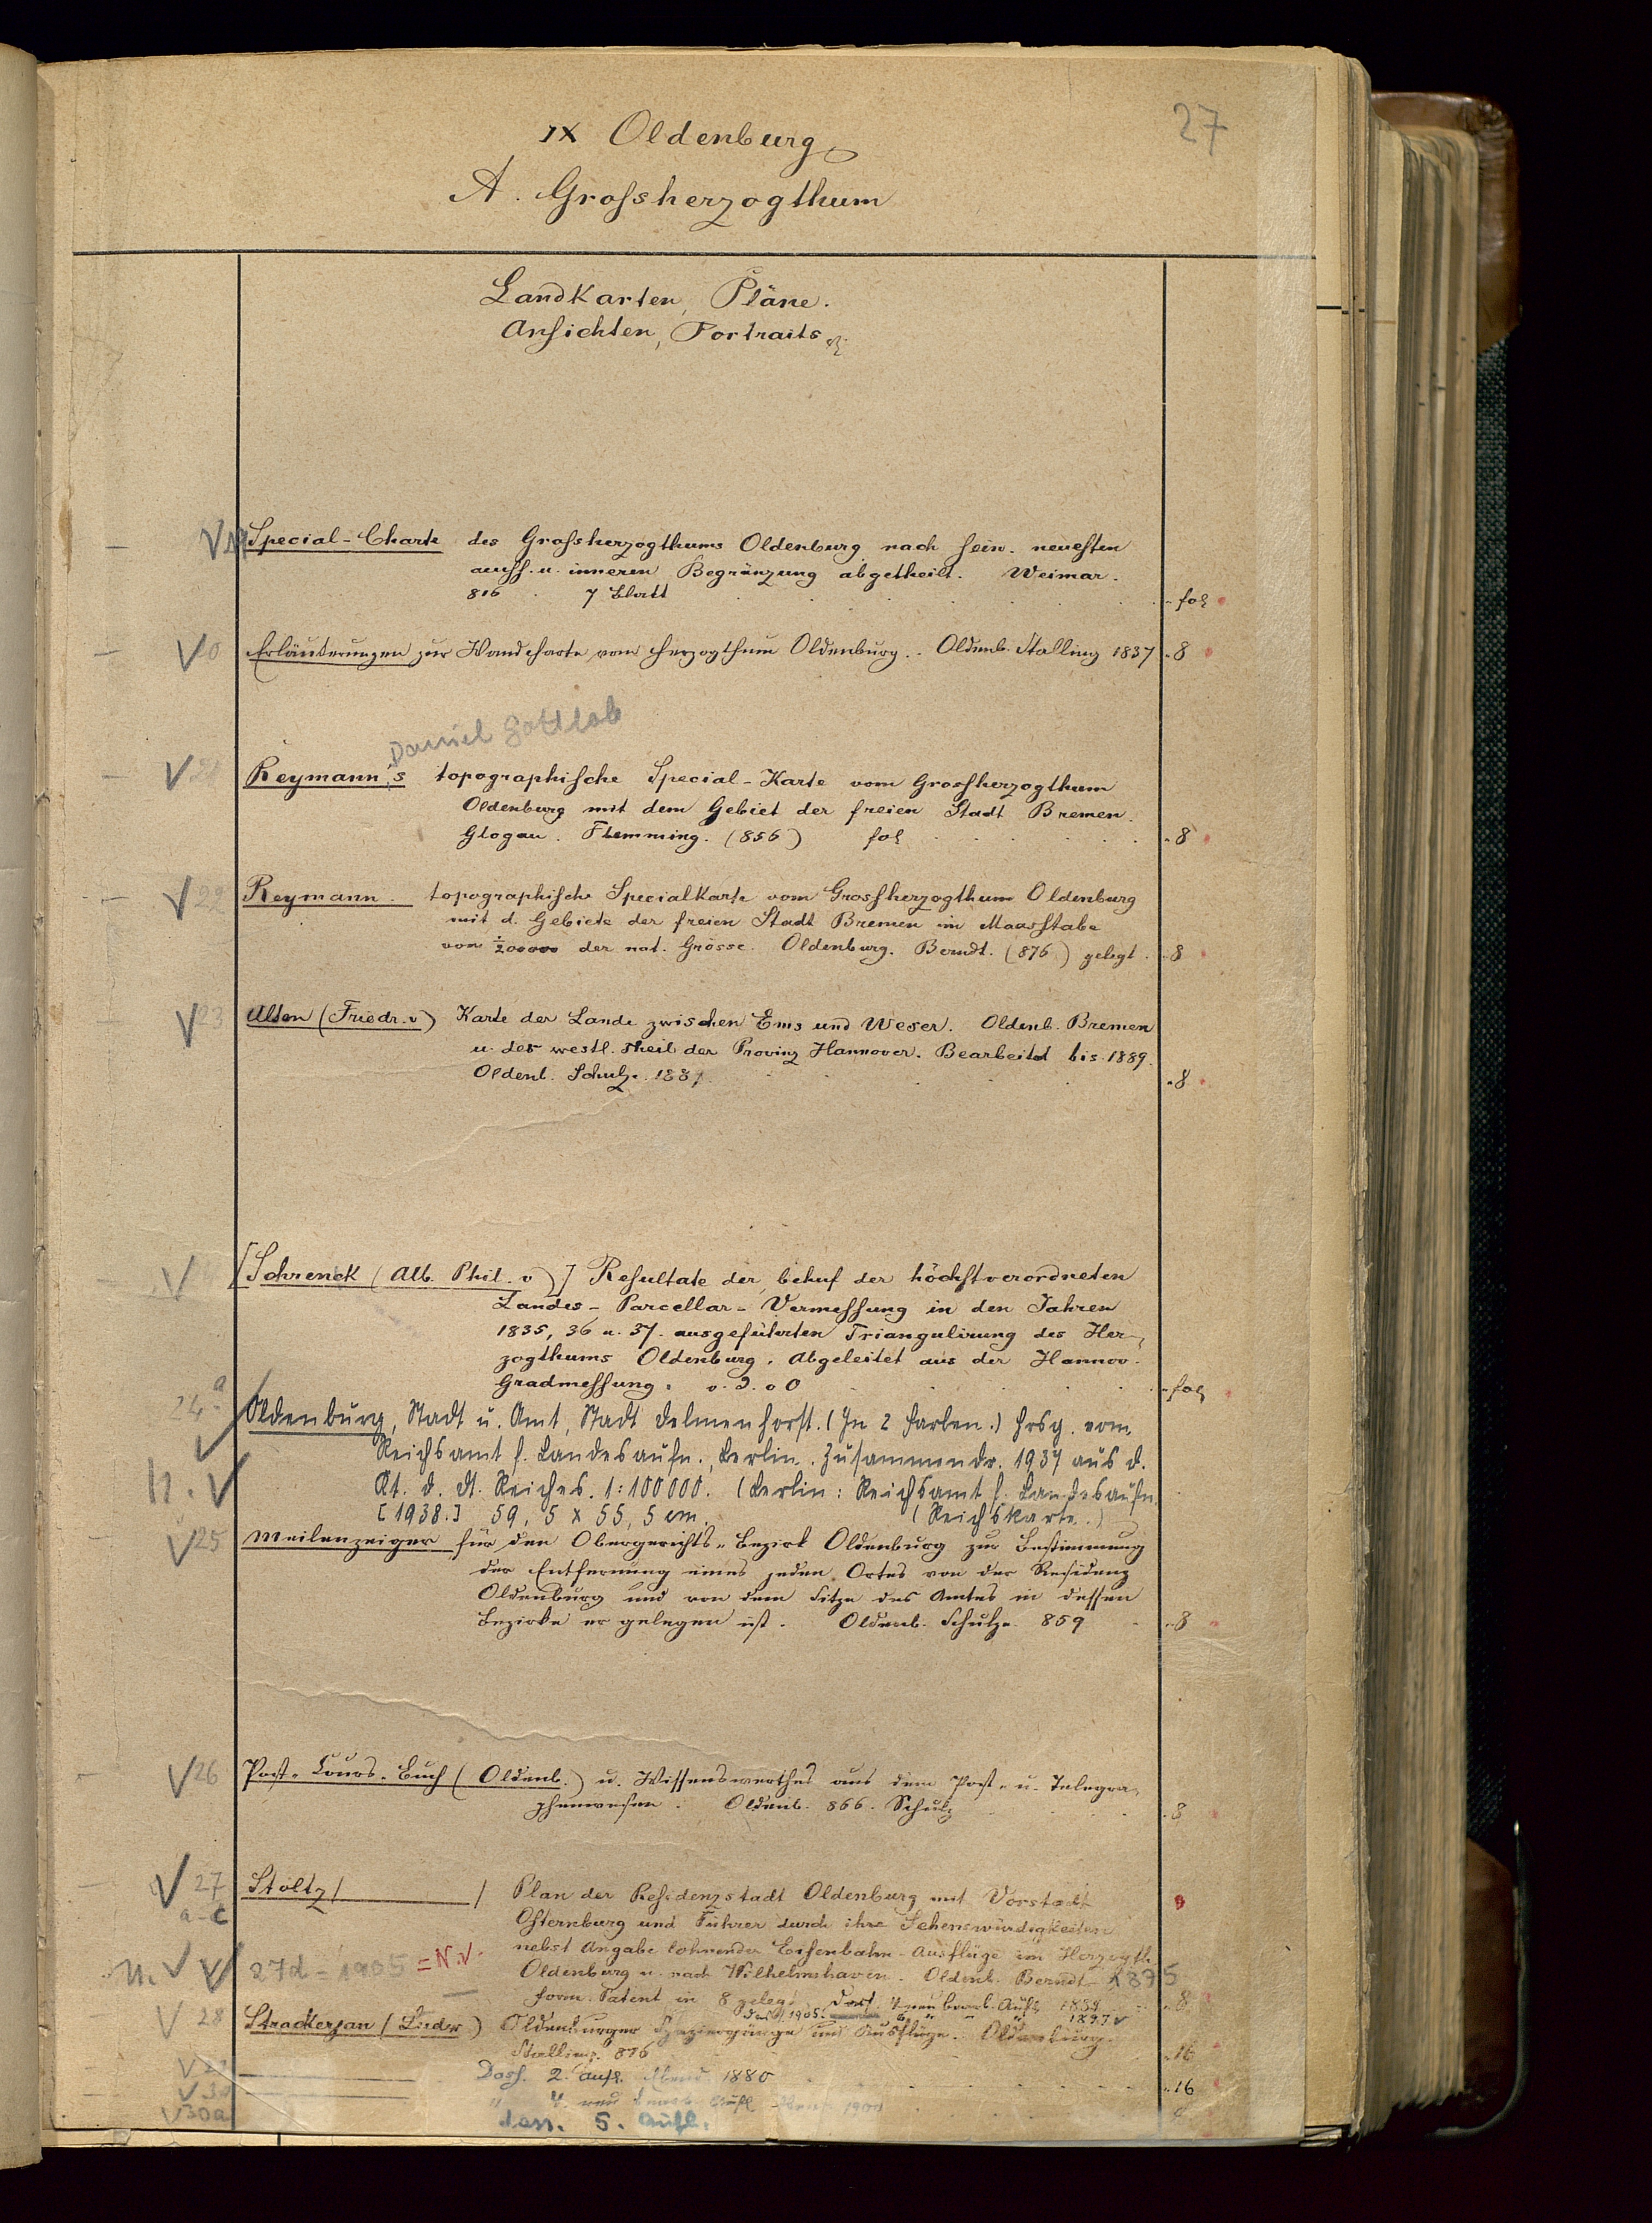 27
IX Oldenburg
A. Grofsherzogthum
Landkarten, Pläne.
Ansichten, Portraits
Special-Charte des Grofsherzogthums Oldenburg nach sein. neuesten
äuss. u. inneren Begränzung abgetheilt. Weimar.
816 . 7 Blatt fol
V 20 Erläuterungen zur Wandcharte vom Herzogthum Oldenburg. Oldenb. Stalling 1837 8
Daniel Gottlob
V 21 Reymann's topographische Special-Karte vom Grossherzogthum
Oldenburg mit dem Gebiet der freien Stadt Bremen.
Glogau. Flemming. (856) fol 8
V 22 Reymann. topographische Specialkarte vom Grossherzogthum Oldenburg
mit d. Gebiete der freien Stadt Bremen im Maasstabe
von 1/200000 der nat. Grösse. Oldenburg. Berndt. (876) gelegt. 8
V 23 Alten (Friedr. v) Karte der Lande zwischen Ems und Weser. Oldenb. Bremen
u. der westl. Theil der Provinz Hannover. Bearbeitet bis 1889.
Oldenb. Schulze. 8
V [Schrenck (Alb. Phil. v)] Resultate der behuf der höchstverordneten
Landes-Parcellar-Vermessung in den Jahren
1835, 36 u. 37. ausgeführten Triangulirung des Her-
zogthums Oldenburg. Abgeleitet aus der Hannov.
Gradmessung. o. J. o O fol
24a Oldenburg, Stadt u. Amt, Stadt Delmenhorst. (In 2 Farben.) Hrsg. vom
V Reichsamt f. Landesaufn., Berlin. Zusammendr. 1937 aus d.
n. V Kt. d. Dt. Reiches. 1:100000. (Berlin: Reichsamt f. Landesaufn.
[1938.] 59,5 x 55,5 cm. (Reichskarte.)
V 25 Meilenzeiger für den Obergerichts-Bezirk Oldenburg zur Bestimmung
der Entfernung eines jeden Ortes von der Residenz
Oldenburg und von dem Sitze des Amtes in dessen
Bezirke er gelegen ist. Oldenb. Schulze. 859 8
V 26 Post-Cours-Buch (Oldenb.) u. Wissenswerthes aus dem Post- u. Telegra-
phenwesen. Oldenb. 866. Schulz 8
V 27 Stoltz / / Plan der Residenzstadt Oldenburg mit Vorstadt
a-c Osternburg und Führer durch ihre Sehenswürdigkeiten
nebst Angabe lohnender Eisenbahn-Ausflüge im Herzogth.
n. V V 27d = 1905 = N.V. Oldenburg u. nach Wilhelmshaven. Oldenb. Berndt 1875
form. Patent in 8 gelegt. 4 neu bearb. Aufl. 8
1905. 1897 V
V 28 Strackerjan (Ludw.) Oldenburger Spaziergänge und Ausflüge. Oldenburg.
Stalling. 876 16
V Dass. 2. Aufl. 1880 16
V 30 1900
V 30a dass. 5. Aufl.